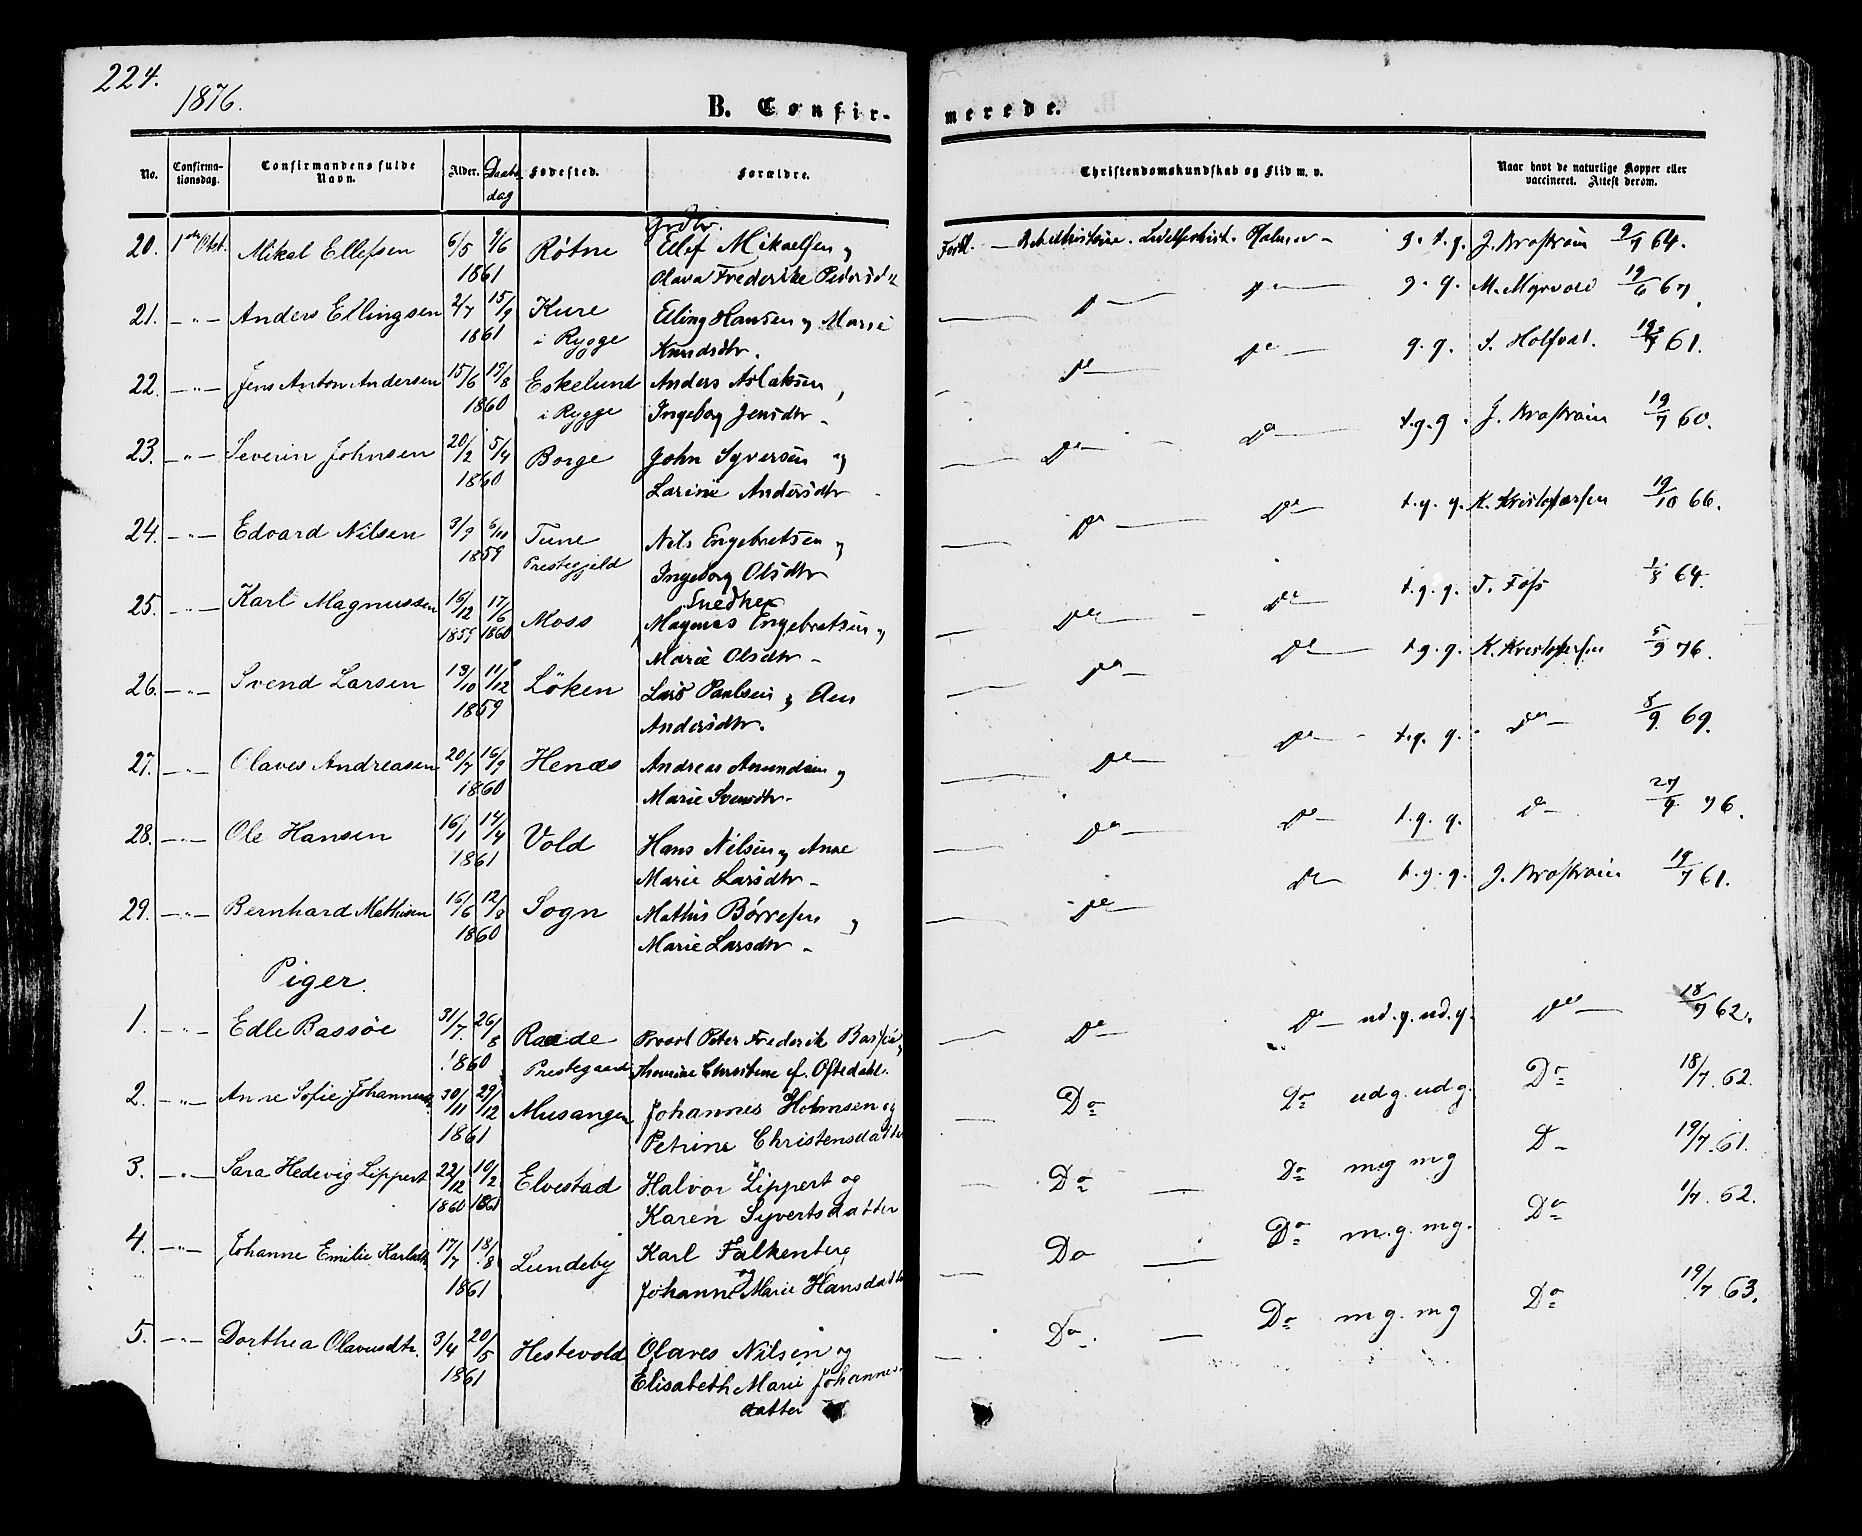 224.
1876.
B. Confir-
merede.
No. Confirma-tionsdag. Confirmandens fulde Navn. Alder. Daabsdag Fødested. Forældre. Christendomskundskab og Flid m. v. Naar havt de naturlige Kopper eller vaccineret. Attest derom.
20. 1 Mikal Ellefsen 6/5 9/6 Røtne Ellef Mikaelsen og g. 9/7 64.
1861 Olava Frederikke
21. -"- Anders Ellingsen 2/7 15/9 Kure Elling Hansen og Marie D° D° g. g. M. Myrvold 19/6 67
1861 i Rygge Knudsdtr.
22. -"- Jens Anton Andersen 15/6 19/8 Eskelund Anders Aslaksen, D° D° g. g. 61.
1860 i Rygge Ingeborg Jensdtr.
23. -"- Severin Johnsen 20/2 5/4 Borge John Syversen og D° D° t.g.g. 19/7 60.
1860 Larine Andersdtr
24. -"- Edvard Nilsen 3/9 6/11 Tune Nils Engebretsen og D° D° t.g.g. K. Kristofersen 19/10 66.
1859 Prestegjeld Ingeborg Olsdtr
25. -"- Karl Magnussen 15/12 17/6 Moss Snedker D° D° t.g.g. T. Foss 64.
1859 1860 Magnus Engebretsen og
Marie Olsdtr
26. -"- Svend Larsen 13/10 11/12 Löken Lars Paulsen og Ane D° D° t.g.g. K. Kristofersen 5/9 76.
1859 Andersdtr.
27. -"- Olaves Andreasen 20/7 16/9 Henæs Andreas Amundsen og D° D° t.g. g. D° 8/9 69.
1860 Marie Svensdtr.
28. -"- Ole Hansen 16/1 14/4 Vold Hans Nilsen og Anne D° D° t.g. g. D° 27/9 76.
1861 Marie Larsdtr
29. -"- Bernhard Mathisen 16/6 12/8 Sogn Mathis Börresen og D° D° t.g.g. 19/7 61.
1860 Marie Larsdtr
Piger.
1. -"- Edle Bassöe 31/7. 26/8 Raade Provst Peter Frederik Bassöe D° D° ud.g.ud.g. D° 18/7 62.
1860 Prestegaard Christine f. Oftedahl.
2. -"- Anne Sofie 30/11 29/12 Musangen Johannes Holmsen og Do Do ud g. ud g. Do 18/7. 62.
1861 Petrine Christensdatter
3. -"- Sara Hedevig Lippert 22/12 10/2 Elvestad Halvor Lippert og Do Do mg mg D 19/7. 61.
1860 1861 Karen Syvertsdatter
4. -"- Johanne Emilie Karlsdtr 17/7 18/8 Lundeby Karl Falkenberg Do Do m.g. mg. Do 1/7. 62.
1861 og Johanne Marie Hansdatter
5. -"- Dorthea Olavesdtr. 3/4 20/5 Hestevold Olaves Nilsen og Do. Do mg. mg Do 19/7 63.
1861 Elisabeth Marie Johannes-
datter